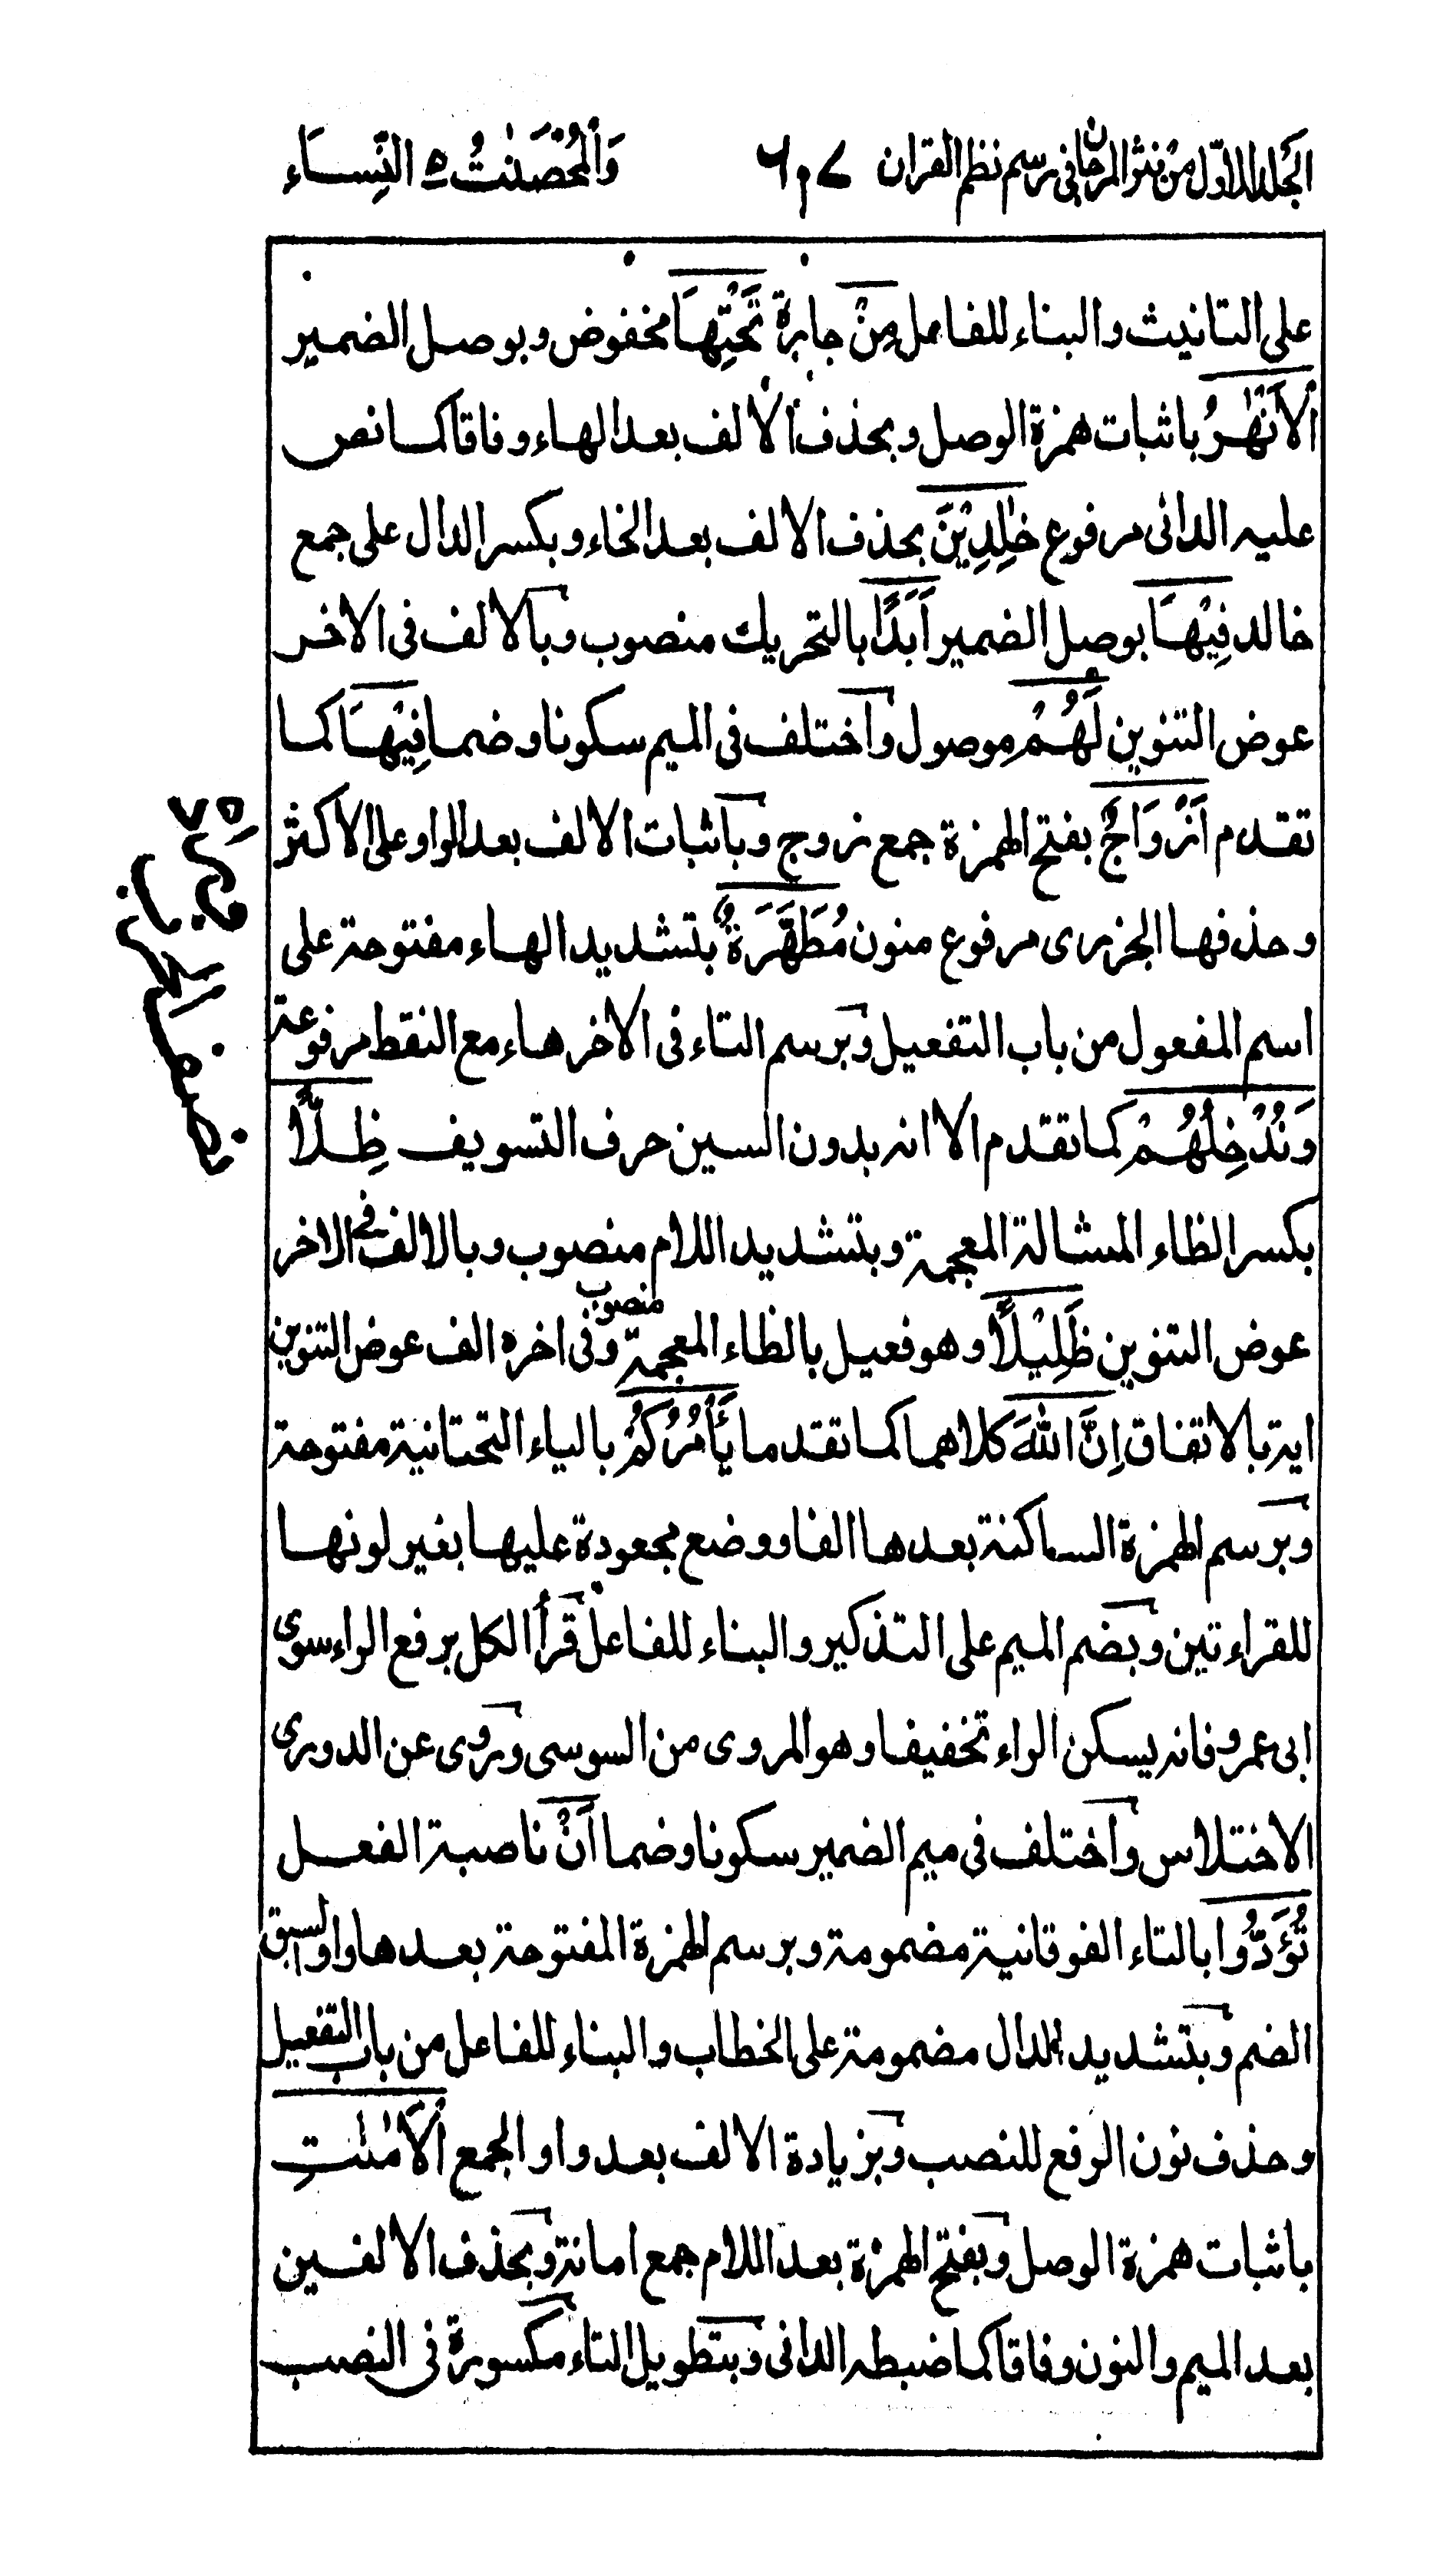 الجلد الاول من نثر المرجان فى رسم نظم القران ٦٠٧ وَالْمُحْصَنٰتُ ٥ النِّسَاء
على التانيث والبناء للفاعل مِنْ جارة تَحْتِهَا مخفوض وبوصل الضمير
الْاَنْهٰرُ باثبات همزة الوصل وبحذف الالف بعد الهاء وفاقا كما نص
عليه الدانى مرفوع خٰلِدِيْنَ بحذف الالف بعد الخاء وبكسر الدال على جمع
خالد فِيْهَا بوصل الضمير اَبَدًا بالتحريك منصوب وبالالف فى الاخر
عوض التنوين لَهُمْ موصول واختلف فى الميم سكونا وضما فِيْهَا كما
تقدم اَزْوَاجٌ بفتح الهمزة جمع زوج وباثبات الالف بعد الواو على الاكثر
وحذفها الجزرى مرفوع منون مُطَهَّرَةٌ بتشديد الهاء مفتوحة على
اسم المفعول من باب التفعيل وبرسم التاء فى الاخر هاء مع النقط مرفوعة
وَنُدْخِلُهُمْ كما تقدم الا انه بدون السين حرف التسويف ظِلًّا
بكسر الظاء المشالة المعجمة وبتشديد اللام منصوب وبالالف فى الاخر
عوض التنوين ظَلِيْلًا وهو فعيل بالظاء المعجمة منصوب وفى اخره الف عوض التنوين
اية بالاتفاق اِنَّ اللّٰهَ كلاهما كما تقدما يَأْمُرُكُمْ بالياء التحتانية مفتوحة
وبرسم الهمزة الساكنة بعدها الفا ووضع مجعودة عليها بغير لونها
للقراءتين وبضم الميم على التذكير والبناء للفاعل قرأ الكل برفع الراء سوى
ابى عمرو فانه يسكن الراء تخفيفا وهو المروى من السوسى وروى عن الدورى
الاختلاس واختلف فى ميم الضمير سكونا وضما اَنْ ناصبة الفعل
تُؤَدُّوا بالتاء الفوقانية مضمومة وبرسم الهمزة المفتوحة بعدها واوا لسبق
الضم وبتشديد الدال مضمومة على الخطاب والبناء للفاعل من باب التفعيل
وحذف نون الرفع للنصب وبزيادة الالف بعد واو الجمع الْاَمٰنٰتِ
باثبات همزة الوصل وبفتح الهمزة بعد اللام جمع امانة وبحذف الالفين
بعد الميم والنون وفاقا كما ضبطه الدانى وبتطويل التاء مكسورة فى النصب